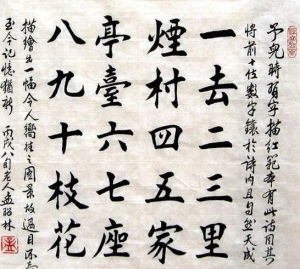 予兒時習字描紅範本有此詩因其
將前十位數字鑲於詩內且句然天成
一去二三里
煙村四五家
亭臺六七座
八九十枝花
描繪出一幅令人嚮往之圖景故過目不忘
至今記憶猶新 丙戌八旬老人孟昭林